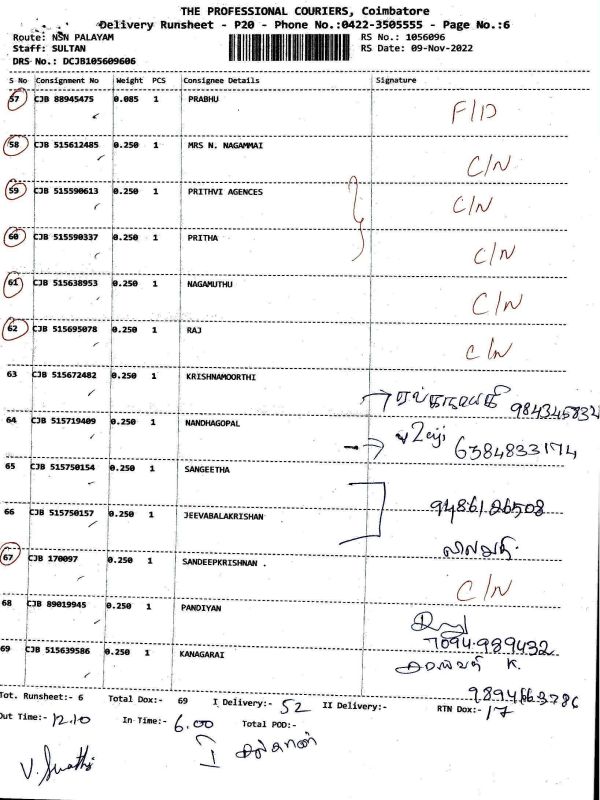 THE PROFESSIONAL COURIERS, Coimbatore
Delivery Runsheet - P20 - Phone No.:0422-3505555 - Page No.:6
Route: NSN PALAYAM RS No.: 1056096
Staff: SULTAN RS Date: 09-Nov-2022
DRS No.: DCJB105609606
S No Consignment No Weight PCS Consignee Details Signature
57 CJB 88945475 0.085 1 PRABHU F/D
58 CJB 515612485 0.250 1 MRS N. NAGAMMAI C/N
59 CJB 515590613 0.250 1 PRITHVI AGENCES C/N
60 CJB 515590337 0.250 1 PRITHA C/N
61 CJB 515638953 0.250 1 NAGAMUTHU C/N
62 CJB 515695078 0.250 1 RAJ C/N
63 CJB 515672482 0.250 1 KRISHNAMOORTHI
64 CJB 515719409 0.250 1 NANDHAGOPAL
6384833174
65 CJB 515750154 0.250 1 SANGEETHA
66 CJB 515750157 0.250 1 JEEVABALAKRISHAN 9486126508
67 CJB 170097 0.250 1 SANDEEPKRISHNAN . C/N
68 CJB 89019945 0.250 1 PANDIYAN
7094989432
69 CJB 515639586 0.250 1 KANAGARAI K.
9894663786
Tot. Runsheet:- 6 Total Dox:- 69 I Delivery:- 52 II Delivery:- RTN Dox:- 17
Out Time:- 12.10 In Time:- 6.00 Total POD:-
V. Swathi